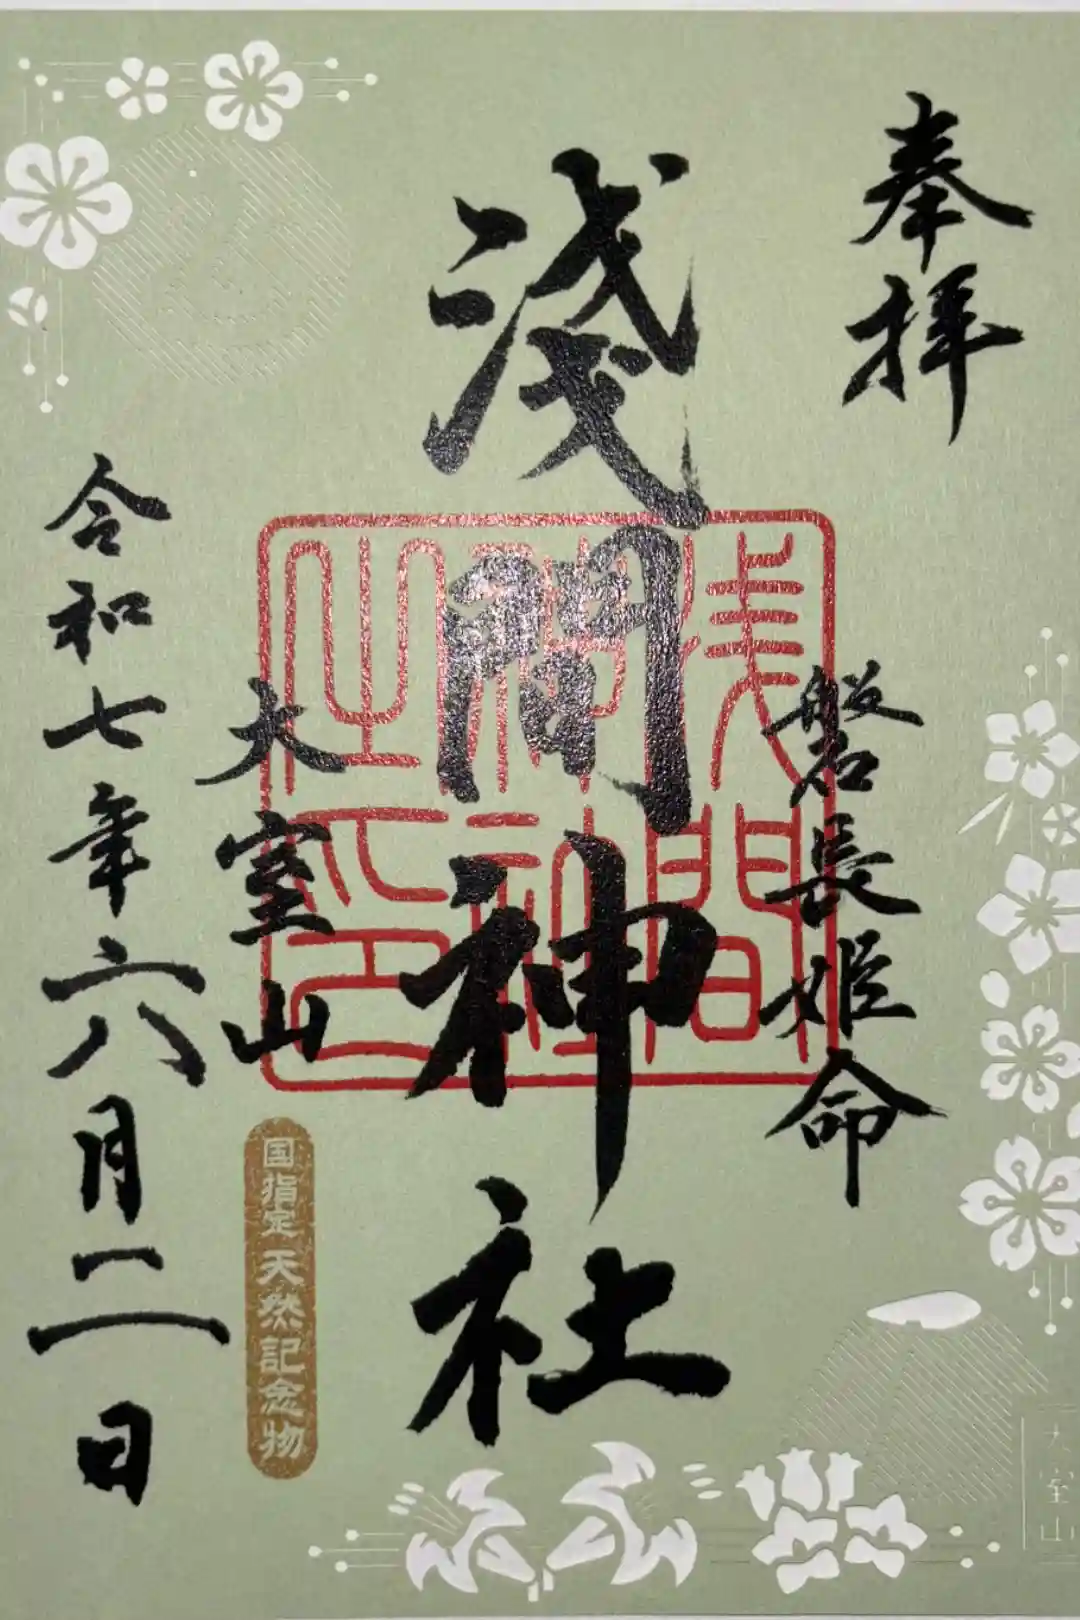 奉拝
磐長姫命
淺間神社
浅間
神社
之印
大室山
国指定天然記念物
令和七年六月二日
大室山